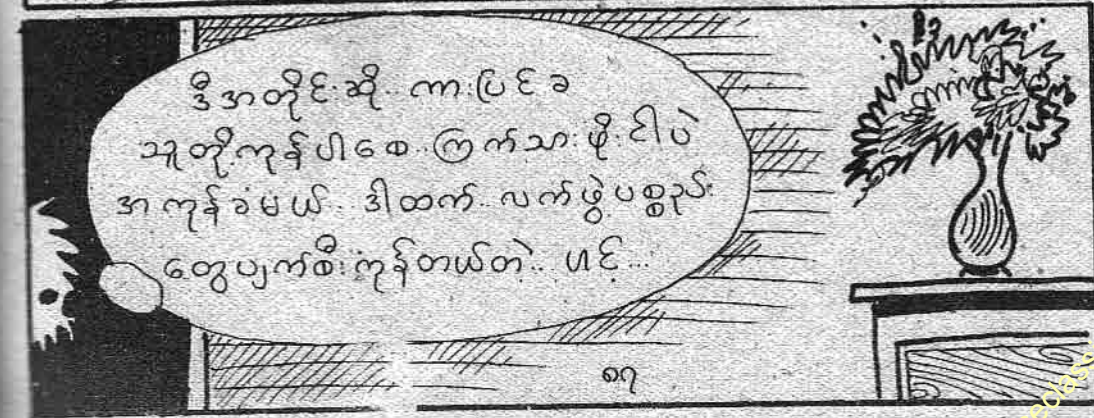 ဒီအတိုင်းဆို.. ကားပြင်ခ
သူတို့ကုန်ပါစေ..ကြက်သားဖိုး ငါပဲ
အကုန်ခံမယ်.. ဒါထက်..လက်ဖွဲ့ပစ္စည်း
တွေပျက်စီးကုန်တယ်တဲ့.. ဟင့်...
၈၇